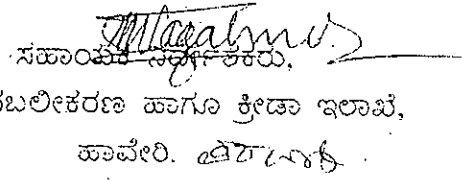 ಸಹಾಯಕ ನಿರ್ದೇಶಕರು,
ಸಬಲೀಕರಣ ಹಾಗೂ ಕ್ರೀಡಾ ಇಲಾಖೆ,
ಹಾವೇರಿ.